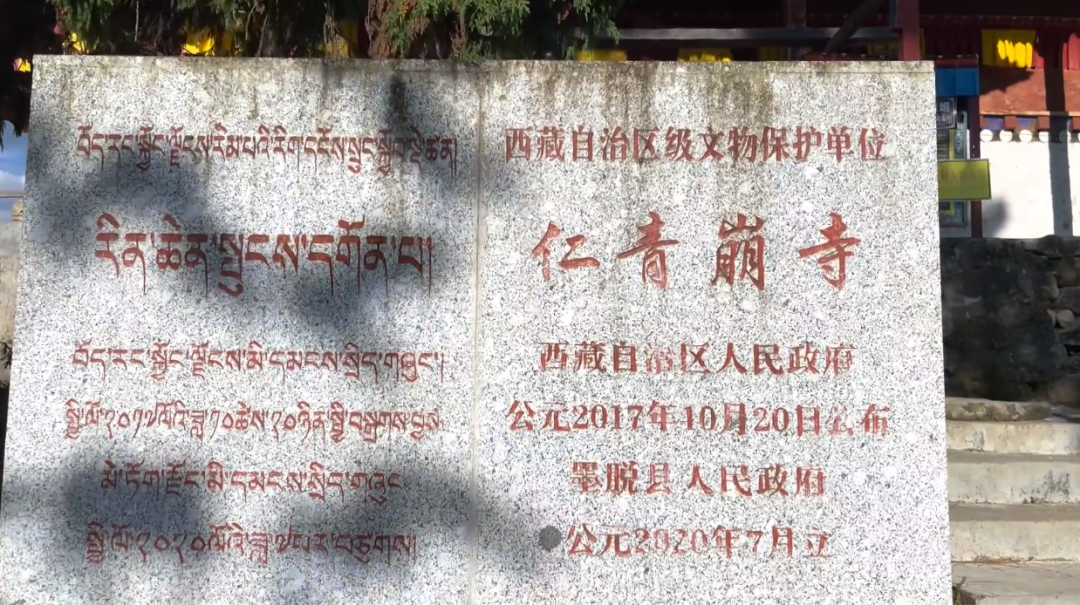 བོད་རང་སྐྱོང་ལྗོངས་རིམ་པའི་རིག་དངོས་སྲུང་སྐྱོབ་སྡེ་ཚན།
རིན་ཆེན་སྤུངས་དགོན་པ།
བོད་རང་སྐྱོང་ལྗོངས་མི་དམངས་སྲིད་གཞུང་།
སྤྱི་ལོ་༢༠༡༧ལོའི་ཟླ་༡༠ཚེས་༢༠ཉིན་སྤྱི་བསྒྲགས་བྱས།
མེ་ཏོག་རྫོང་མི་དམངས་སྲིད་གཞུང
སྤྱི་ལོ་༢༠༢༠ལོའི་ཟླ་༧པར་བཙུགས།
西藏自治区级文物保护单位
仁青崩寺
西藏自治区人民政府
公元2017年10月20日公布
墨脱县人民政府
公元2020年7月立